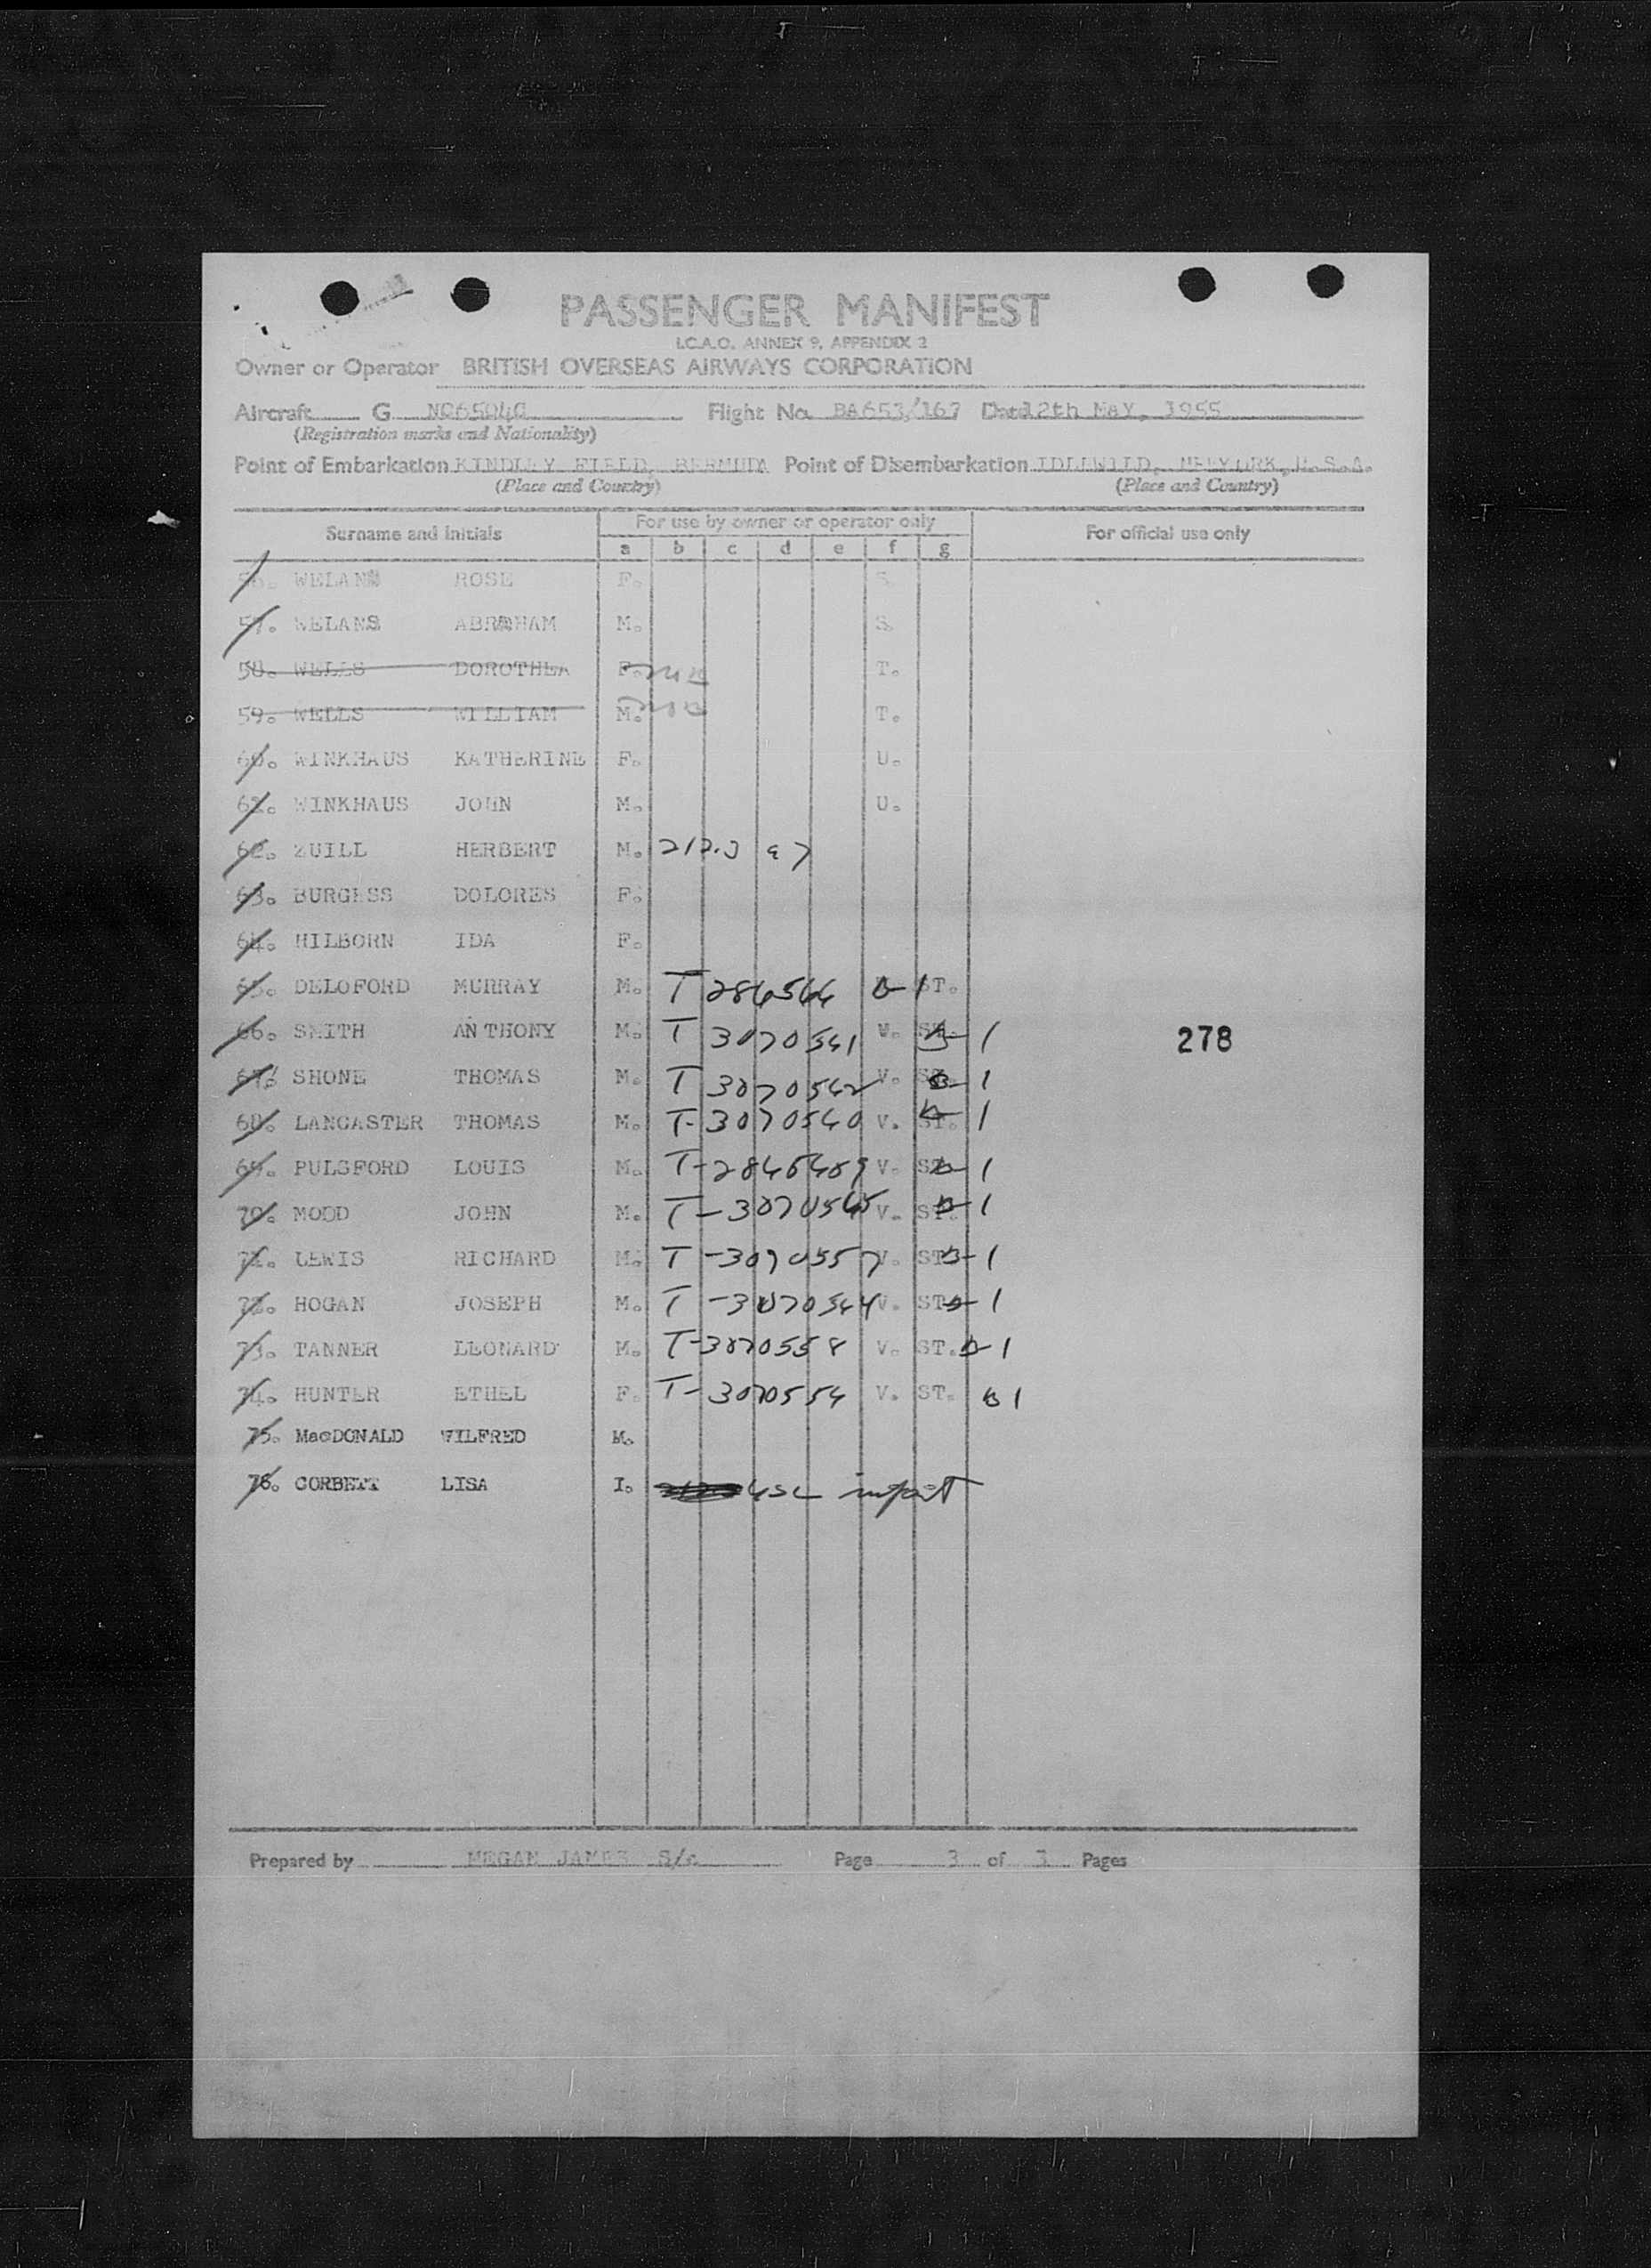 PASSENGER MANIFEST
I.C.A.O. ANNEX 9, APPENDIX 2
Owner or Operator BRITISH OVERSEAS AIRWAYS CORPORATION
Aircraft G Flight No. BA653/167 Date 12th May, 1955
(Registration marks and Nationality)
Point of Embarkation KINDLEY FIELD, BERMUDA Point of Disembarkation IDLEWILD, NEWYORK, U.S.A.
(Place and Country) (Place and Country)
Surname and initials For use by owner or operator only For official use only
a b c d e f g
56. ROSE F. S.
57. WELANS ABRAHAM M. S.
58. WELLS DOROTHEA F. T.
59. WELLS WILLIAM M. T.
60. WINKHAUS KATHERINE F. U.
61. WINKHAUS JOHN M. U.
62. ZUILL HERBERT M. 212.3
63. BURGESS DOLORES F.
64. HILBORN IDA F.
65. DELOFORD MURRAY M. T ST.
66. SMITH ANTHONY M. T 3070541 V. 1
278
67. SHONE THOMAS M. T 3070542 V. 1
68. LANCASTER THOMAS M. T-3070540 V. ST. 1
69. PULSFORD LOUIS M. T-2845489 V. 1
70. MODD JOHN M. T-3070545 V. ST. 1
71. LEWIS RICHARD M. T-3070557 V. ST. 1
72. HOGAN JOSEPH M. T-3070544 V. ST. 1
73. TANNER LEONARD M. T-3070558 V. ST. 1
74. HUNTER ETHEL F. T-3070554 V. ST. B1
75. MacDONALD WILFRED M.
76. CORBETT LISA I. USC infant
Prepared by MEGAN JAMES Page 3 of 3 Pages